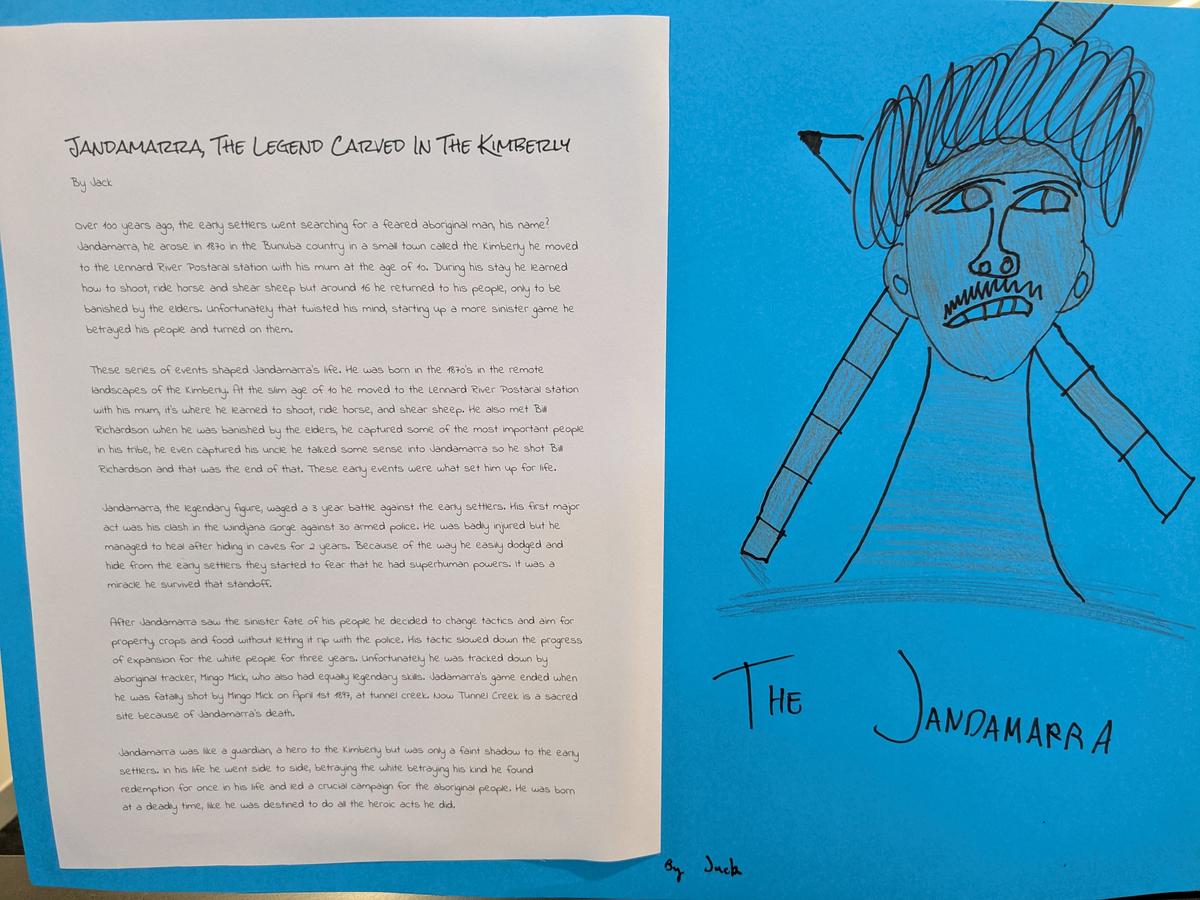 JANDAMARRA, THE LEGEND CARVED IN THE KIMBERLY
By Jack
Over 100 years ago, the early settlers went searching for a feared aboriginal man, his name?
Jandamarra, he arose in 1870 in the Bunuba country in a small town called the Kimberly he moved
to the Lennard River Postaral station with his mum at the age of 10. During his stay he learned
how to shoot, ride horse and shear sheep but around 16 he returned to his people, only to be
banished by the elders. Unfortunately that twisted his mind, starting up a more sinister game he
betrayed his people and turned on them.
These series of events shaped Jandamarra's life. He was born in the 1870's in the remote
landscapes of the Kimberly. At the slim age of 10 he moved to the Lennard River Postaral station
with his mum, it's where he learned to shoot, ride horse, and shear sheep. He also met Bill
Richardson when he was banished by the elders, he captured some of the most important people
in his tribe, he even captured his uncle he talked some sense into Jandamarra so he shot Bill
Richardson and that was the end of that. These early events were what set him up for life.
Jandamarra, the legendary figure, waged a 3 year battle against the early settlers. His first major
act was his clash in the Windjana Gorge against 30 armed police. He was badly injured but he
managed to heal after hiding in caves for 2 years. Because of the way he easily dodged and
hide from the early settlers they started to fear that he had superhuman powers. It was a
miracle he survived that standoff.
After Jandamarra saw the sinister fate of his people he decided to change tactics and aim for
property, crops and food without letting it rip with the police. His tactic slowed down the progress
of expansion for the white people for three years. Unfortunately he was tracked down by
aboriginal tracker, Mingo Mick, who also had equally legendary skills. Jadamarra's game ended when
he was fatally shot by Mingo Mick on April 1st 1897, at tunnel creek. Now Tunnel Creek is a sacred
site because of Jandamarra's death.
Jandamarra was like a guardian, a hero to the Kimberly but was only a faint shadow to the early
settlers. In his life he went side to side, betraying the white betraying his kind he found
redemption for once in his life and led a crucial campaign for the aboriginal people. He was born
at a deadly time, like he was destined to do all the heroic acts he did.
THE JANDAMARRA
By Jack